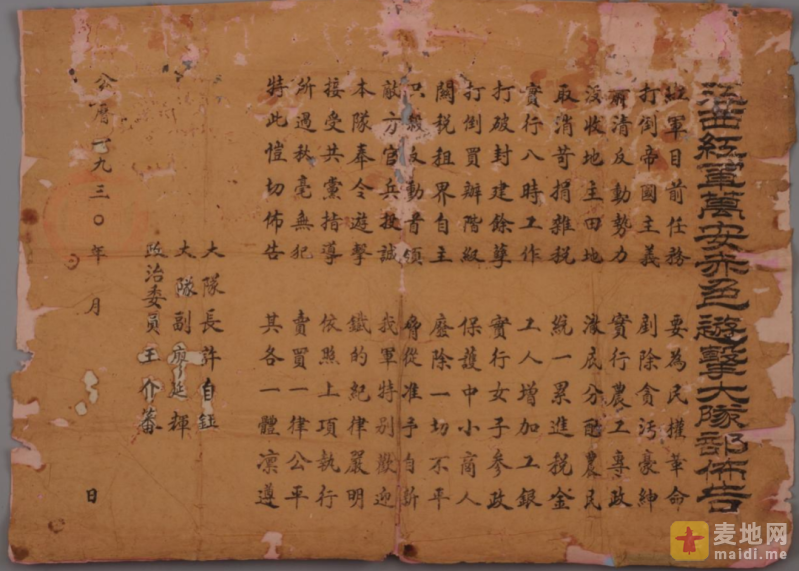 江西紅軍萬安赤色遊擊大隊部佈告
紅軍目前任務 要為民權革命
打倒帝國主義 剷除貪污豪紳
肅清反動勢力 實行農工專政
沒收地主田地 澈底分配農民
取消苛捐雜稅 統一累進稅金
實行八時工作 工人增加工銀
打破封建餘孽 實行女子參政
打倒買辦階級 保護中小商人
關稅租界自主 廢除一切不平
只殺反動首領 脅從准予自新
敵方官兵投誠 我軍特別歡迎
本隊奉令遊擊 鐵的紀律嚴明
接受共黨指導 依照上項執行
所過秋毫無犯 賣買一律公平
特此愷切佈告 其各一體凜遵
大隊長 許自鈺
大隊副 廖延輝
政治委員 王介蕃
公曆一九三〇年 月 日
麦地网
maidi.me